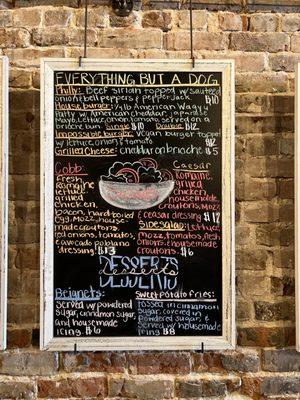 EVERYTHING BUT A DOG
Philly: Beef sirloin topped w/ sauteed
onion & bell peppers & pepperjack $10
House burger: 1/2 lb American Wagyu
Patty w/ American cheddar, Jackaroo
Mayo, lettuce, onion, tomato, served on a
brioche bun Single $10 Double $12
Impossible burger: Vegan burger topped
w/ lettuce, onion & tomato $12
Grilled Cheese: cheddar on brioche $5
Cobb:
Fresh
Romaine
lettuce
grilled
Chicken,
bacon, hard-boiled
egg, Mozz, house
made croutons,
red onions, tomatoes,
& avocado poblano
dressing! $13
Caesar
Romaine,
grilled
chicken,
housemade
croutons, Mozz
& ceasar dressing $12
Side salad: lettuce,
Mozz, tomatoes, fresh
onions, & housemade
croutons. $6
DESSERTS
desserts
Beignets:
Served w/ powdered
sugar, cinnamon sugar,
and housemade
icing $7
Sweet potato fries:
Tossed in cinnamon
sugar, covered in
powdered sugar &
served w/ housemade
icing $8